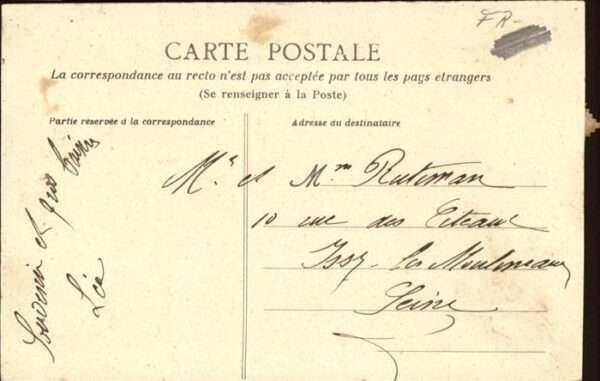 FR-
CARTE POSTALE
La correspondance au recto n'est pas acceptée par tous les pays etrangers
(Se renseigner à la Poste)
Partie réservée à la correspondance
Adresse du destinataire
Souvenir et gros baisers
Léa
Mr et Mme
10 rue des
Issy-les Moulineaux
Seine